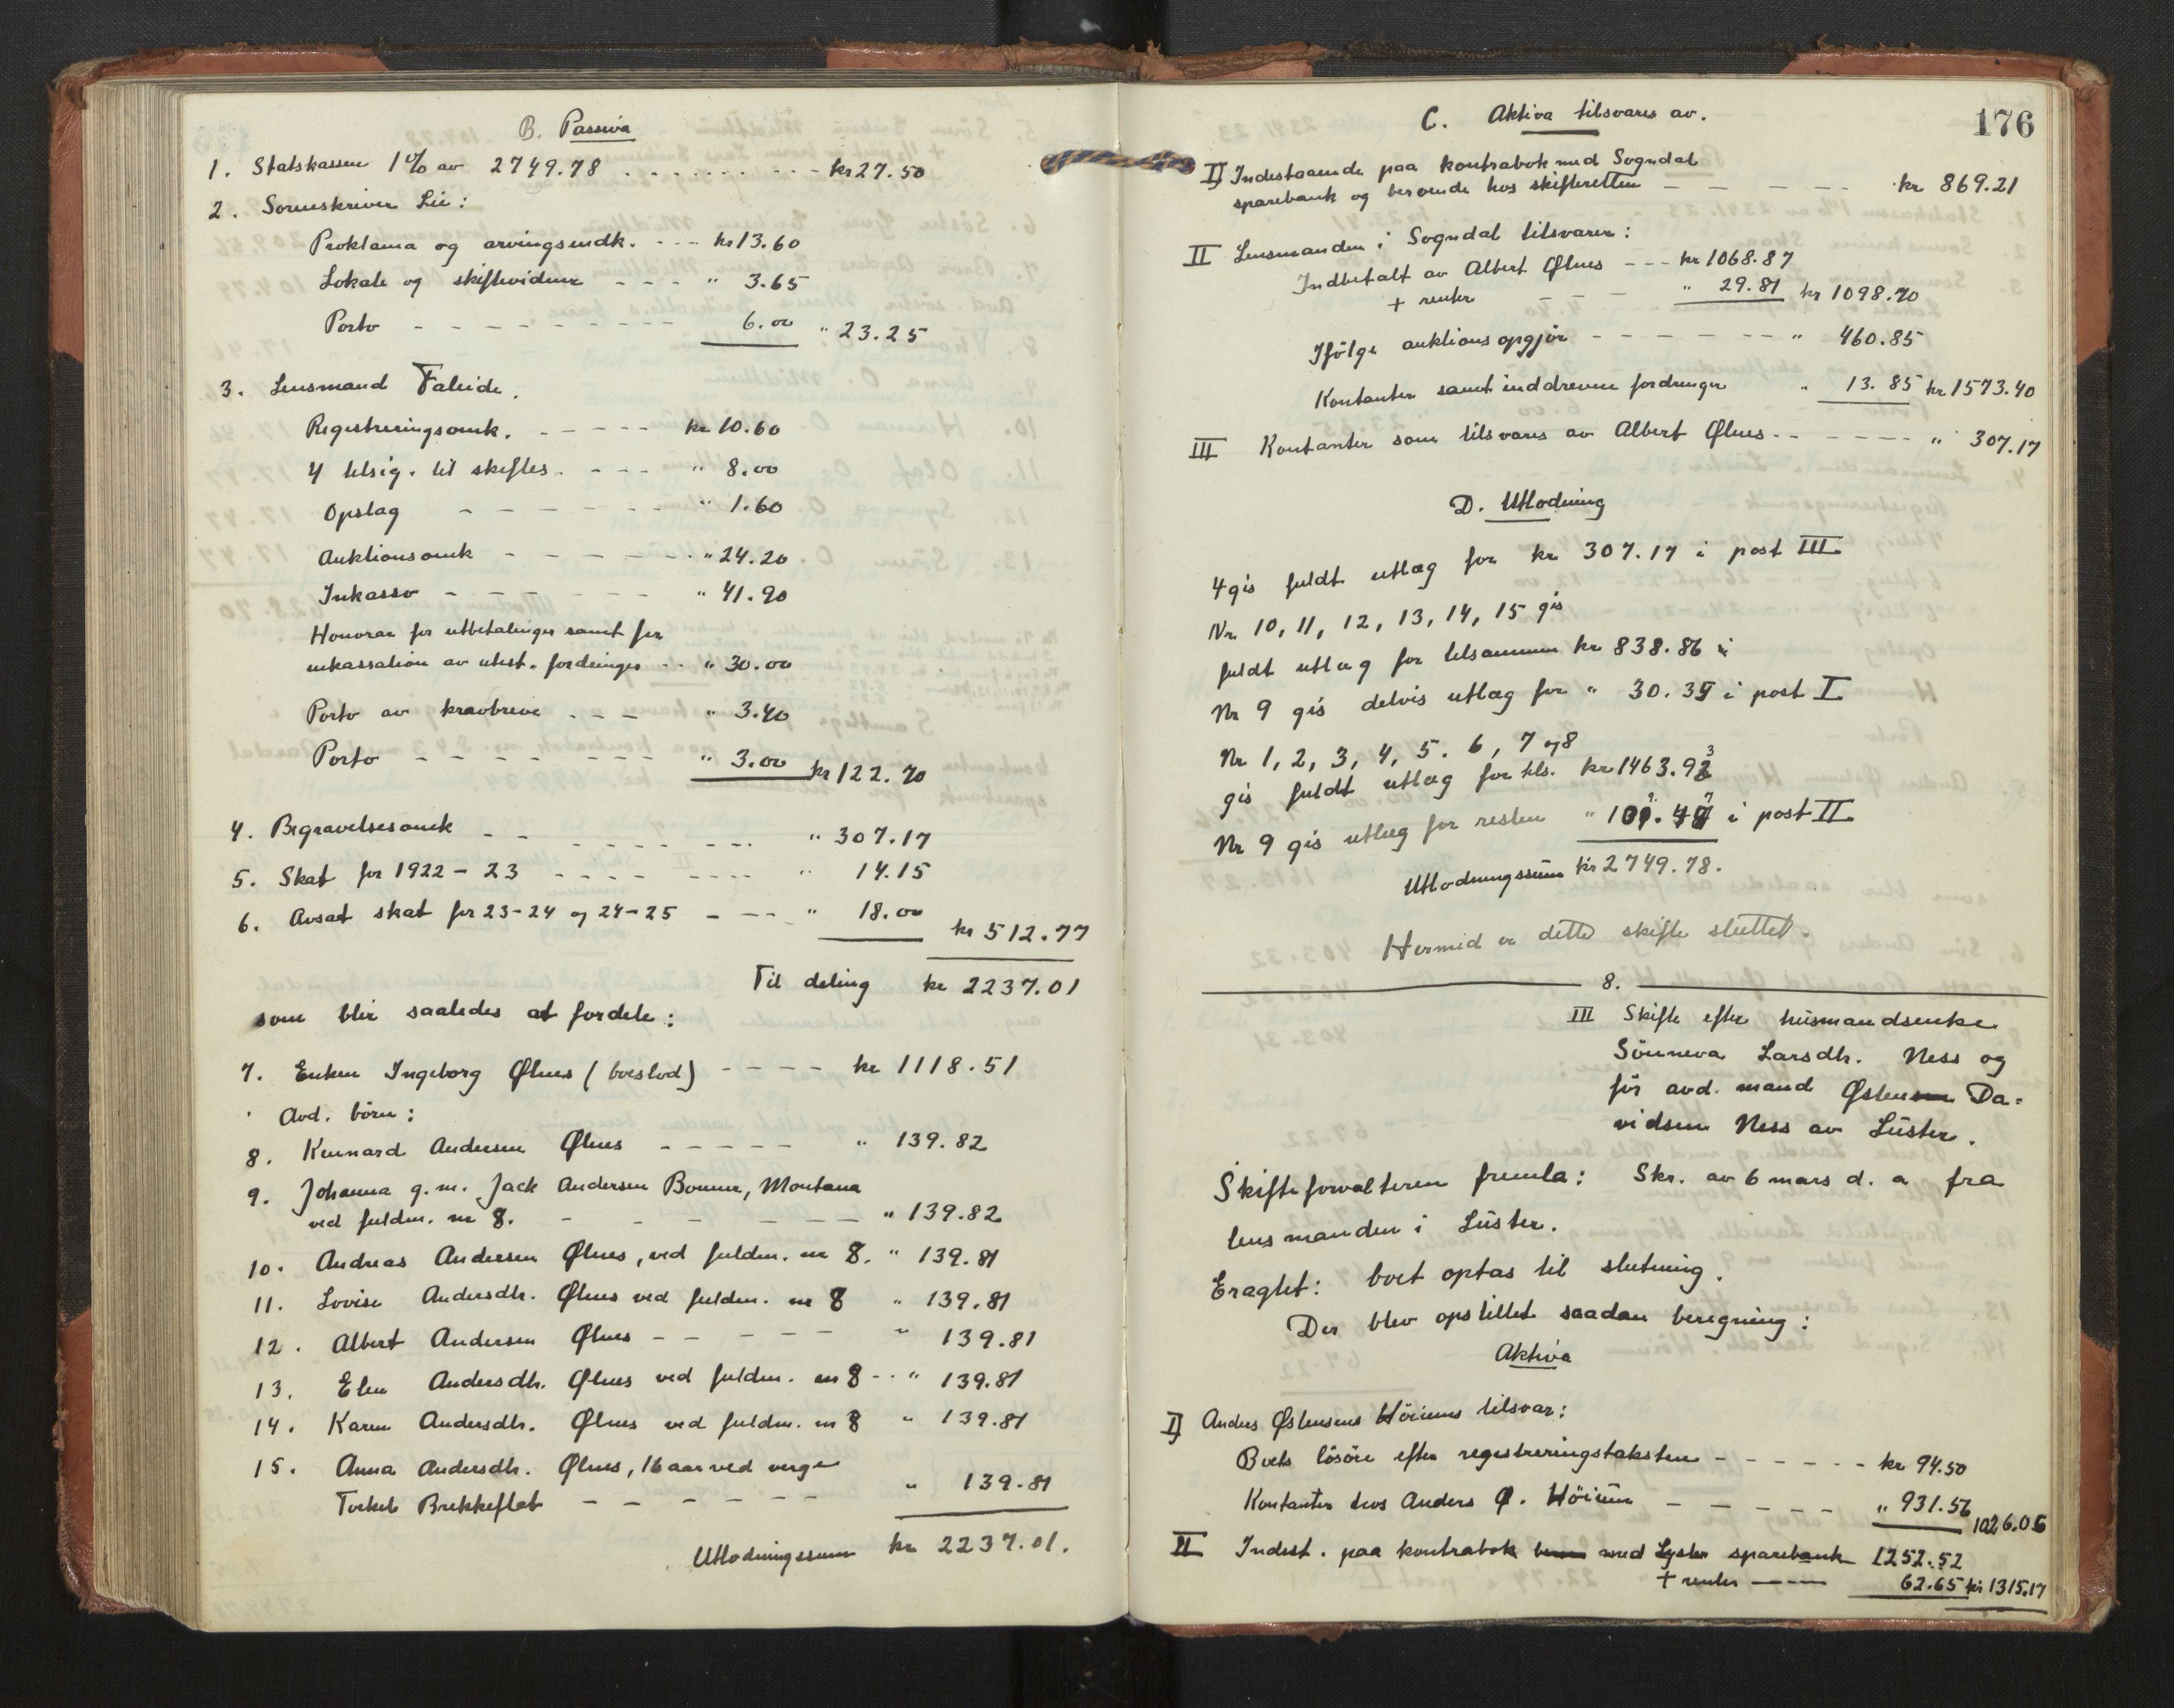 B. Passiva
1. Statskassen 1% av 2749.78 . . . . . . . . - - - kr 27.50
2. Sorenskriver Lie:
Proklama og arvingsindk. - - - kr 13.60
Lokale og skiftevidner - - - " 3.65
Porto - - - - - - - - - - 6.00 " 23.25
3. Lensmand Faleide.
Registreringsomk. - - - - - kr 10.60
4 tilsig. til skiftes. - - - " 8.00
Opslag - - - - - - " 1.60
Auktionsomk - - - - - - " 24.20
Inkasso - - - - - - " 41.90
Honorar for utbetalinger samt for
inkassation av utest. fordringer - - " 30.00
Porto av kravbreve - - - " 3.40
Porto - - - - - - - - " 3.00 kr 122.70
4. Begravelsesomk - - - - - - - - " 307.17
5. Skat for 1922-23 - - - - - - - - " 14.15
6. Avsat skat for 23-24 og 24-25 - - - " 18.00
kr 512.77
Til deling kr 2237.01
som blir saaledes at fordele:
7. Enken Ingeborg Ølnes (boeslod) - - - - kr 1118.51
Avd. börn:
8. Kennard Andersen Ølnes - - - - - " 139.82
9. Johanna g.m. Jack Andersen Bonner, Montana
ved fuldm. nr 8. - - - - - - - " 139.82
10. Andreas Andersen Ølnes, ved fuldm. nr 8. " 139.81
11. Lovise Andersdtr. Ølnes ved fuldm. nr 8 " 139.81
12. Albert Andersen Ølnes - - - - - " 139.81
13. Elen Andersdtr. Ølnes ved fuldm. nr 8 - - " 139.81
14. Karen Andersdtr. Ølnes ved fuldm. nr 8 " 139.81
15. Anna Andersdtr. Ølnes, 16 aar ved verge
Torkel Brekkeflot - - - - - - " 139.81
Utlodningssum kr 2237.01.
176
C. Aktiva tilsvares av.
I) Indestaaende paa kontrabok med Sogndal
sparebank og beroende hos skifteretten - - - - - - kr 869.21
II Lensmanden i Sogndal tilsvarer:
Indbetalt av Albert Ølnes - - - kr 1068.87
+ renter - - - " 29.81 kr 1098.70
Ifölge auktionsopgjör - - - - - - - " 460.85
Kontanter samt inddrevne fordringer " 13.85 kr 1573.40
III Kontanter som tilsvares av Albert Ølnes - - - - - - " 307.17
D. Utlodning
4 gis fuldt utlæg for kr 307.17 i post III
Nr 10, 11, 12, 13, 14, 15 gis
fuldt utlæg for tilsammen kr 838.86 i
Nr 9 gis delvis utlæg for " 30.35 i post I
Nr 1, 2, 3, 4, 5. 6, 7 og 8
gis fuldt utlæg for tils. kr 1463.93
Nr 9 gis utlæg for resten " 109.47 i post II
Utlodningssum kr 2749.78.
Hermed er dette skifte sluttet.
8.
III Skifte efter husmandsenke
Sönneva Larsdtr. Ness og
för avd. mand Østen Da=
vidsen Ness av Lüster.
Skifteforvalteren fremla: Skr. av 6 mars d. a fra
lensmanden i Lüster.
Eragtet: boet optas til slutning.
Der blev opstillet saadan beregning:
Aktiva
I) Anders Østensens Höiums tilsvar:
Boets lösöre efter registreringstaksten - - - - - - kr 94.50
Kontanter hos Anders Ø. Höium - - - - - " 931.56
1026.06
II Indest. paa kontrabok med Lyster sparebank 1252.52
+ renter - - - 62.65 kr 1315.17